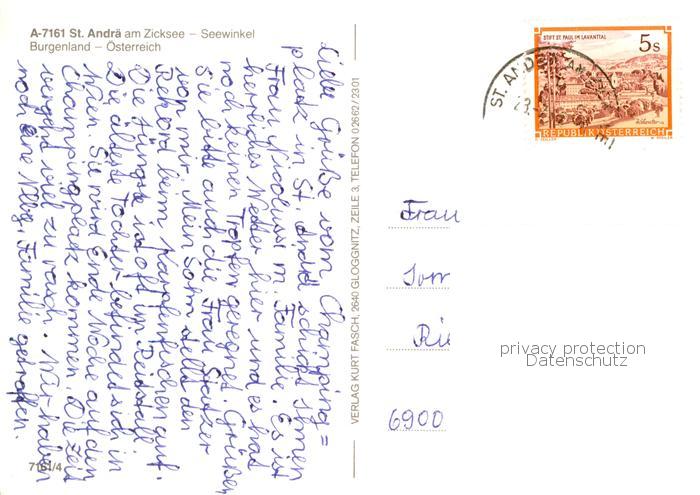 A-7161 St. Andrä am Zicksee – Seewinkel
Burgenland – Österreich
Liebe Grüße vom Champing=
platz in St. Andrä schickt Ihnen
Frau Nicolussi m. Familie. Es ist
herrliches Wetter hier und es hat
noch keinen Tropfen geregnet. Grüßen
Sie bitte auch die Frau
von mir. Mein Sohn stellt den
Rekord beim Karpfenfischen auf.
Die Jüngste ist oft im Reitstall
Die älteste Tochter befindet sich in
Wien. Sie wird Ende Woche auf den
Champingplatz kommen. Die Zeit
vergeht viel zu rasch. Wir haben
noch eine Familie getroffen.
7161/4
VERLAG KURT FASCH, 2640 GLOGGNITZ, ZEILE 3, TELEFON 02662/2301
STIFT ST. PAUL IM LAVANTTAL
5 S
REPUBLIK ÖSTERREICH
ST. AND
Frau
6900
privacy protection
Datenschutz